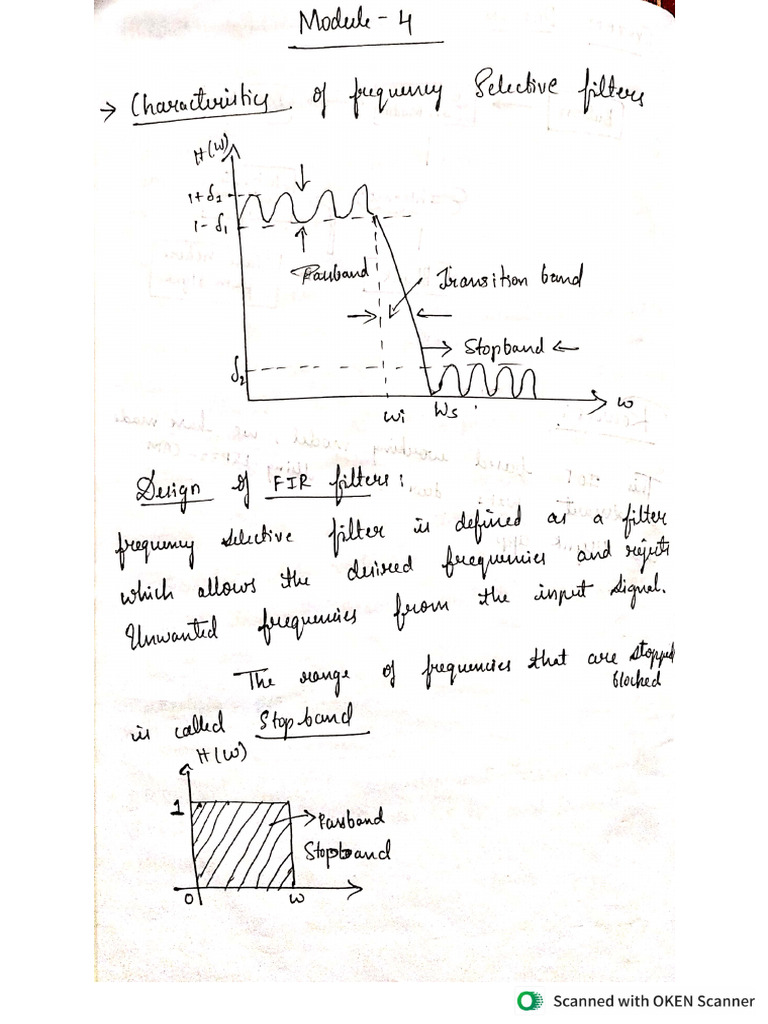 Module - 4
→ Characteristics of frequency Selective filters
H(W)
1+δ1
1-δ1
Passband
Transition band
Stopband
δ2
Wi
Ws
w
Design of FIR filters:
frequency selective filter is defined as a filter
which allows the desired frequencies and rejects
Unwanted frequencies from the input signal.
The range of frequencies that are stopped
blocked
is called Stopband
H(W)
1
Passband
Stopband
0
W
Scanned with OKEN Scanner